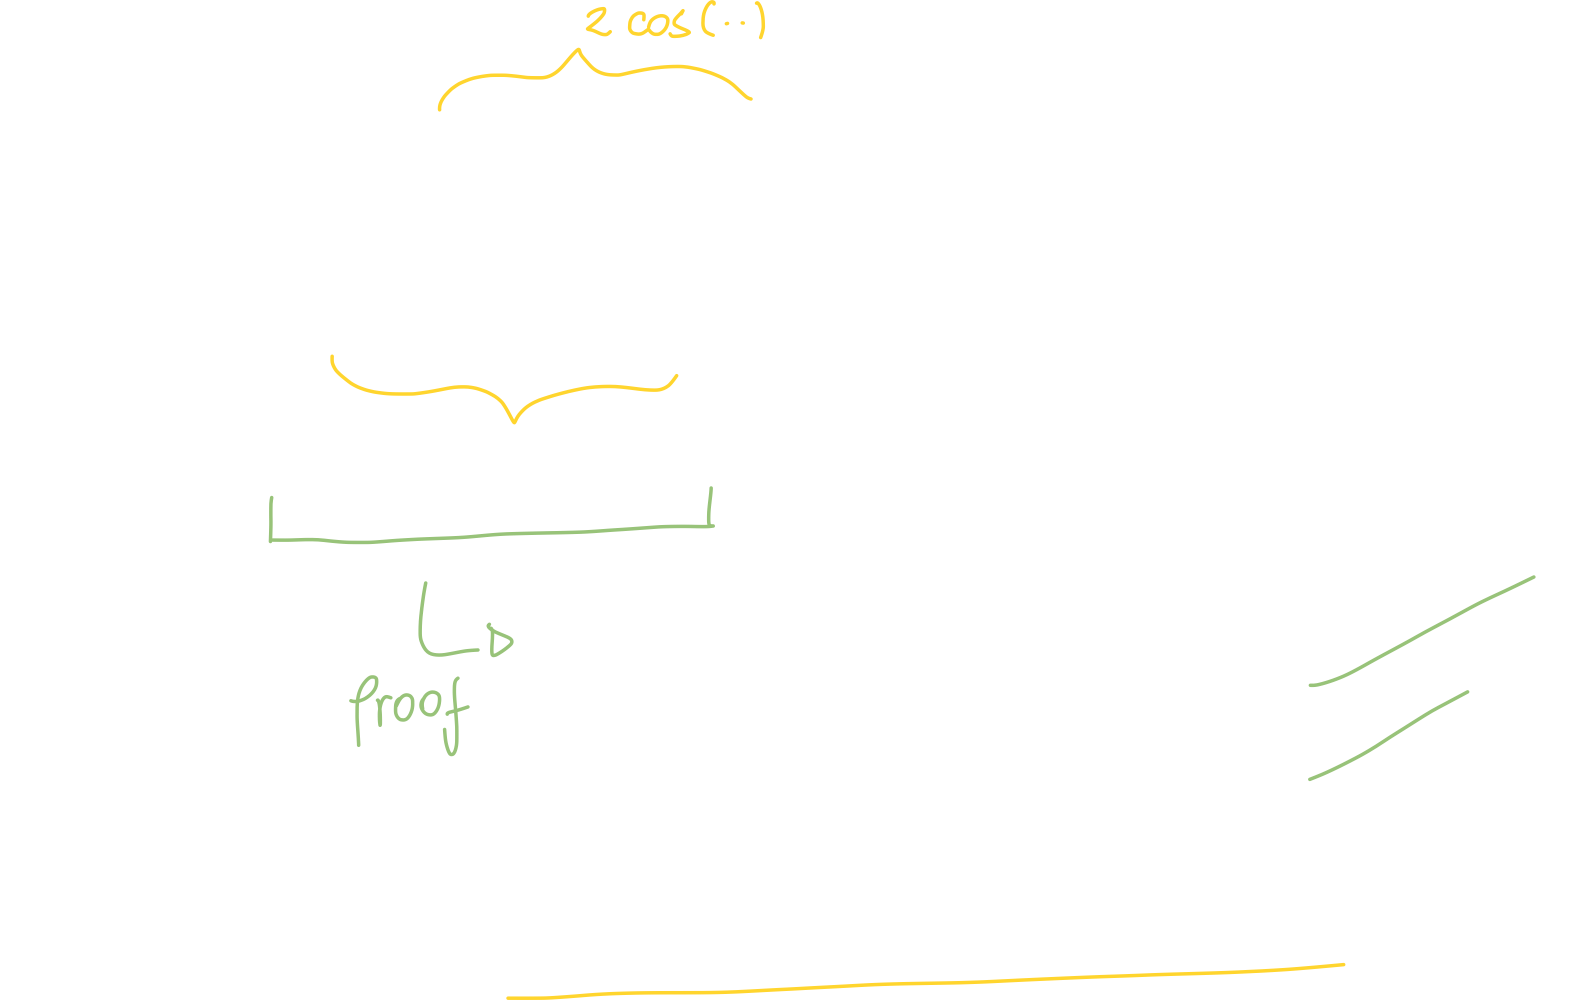 2 cos(..)
Proof